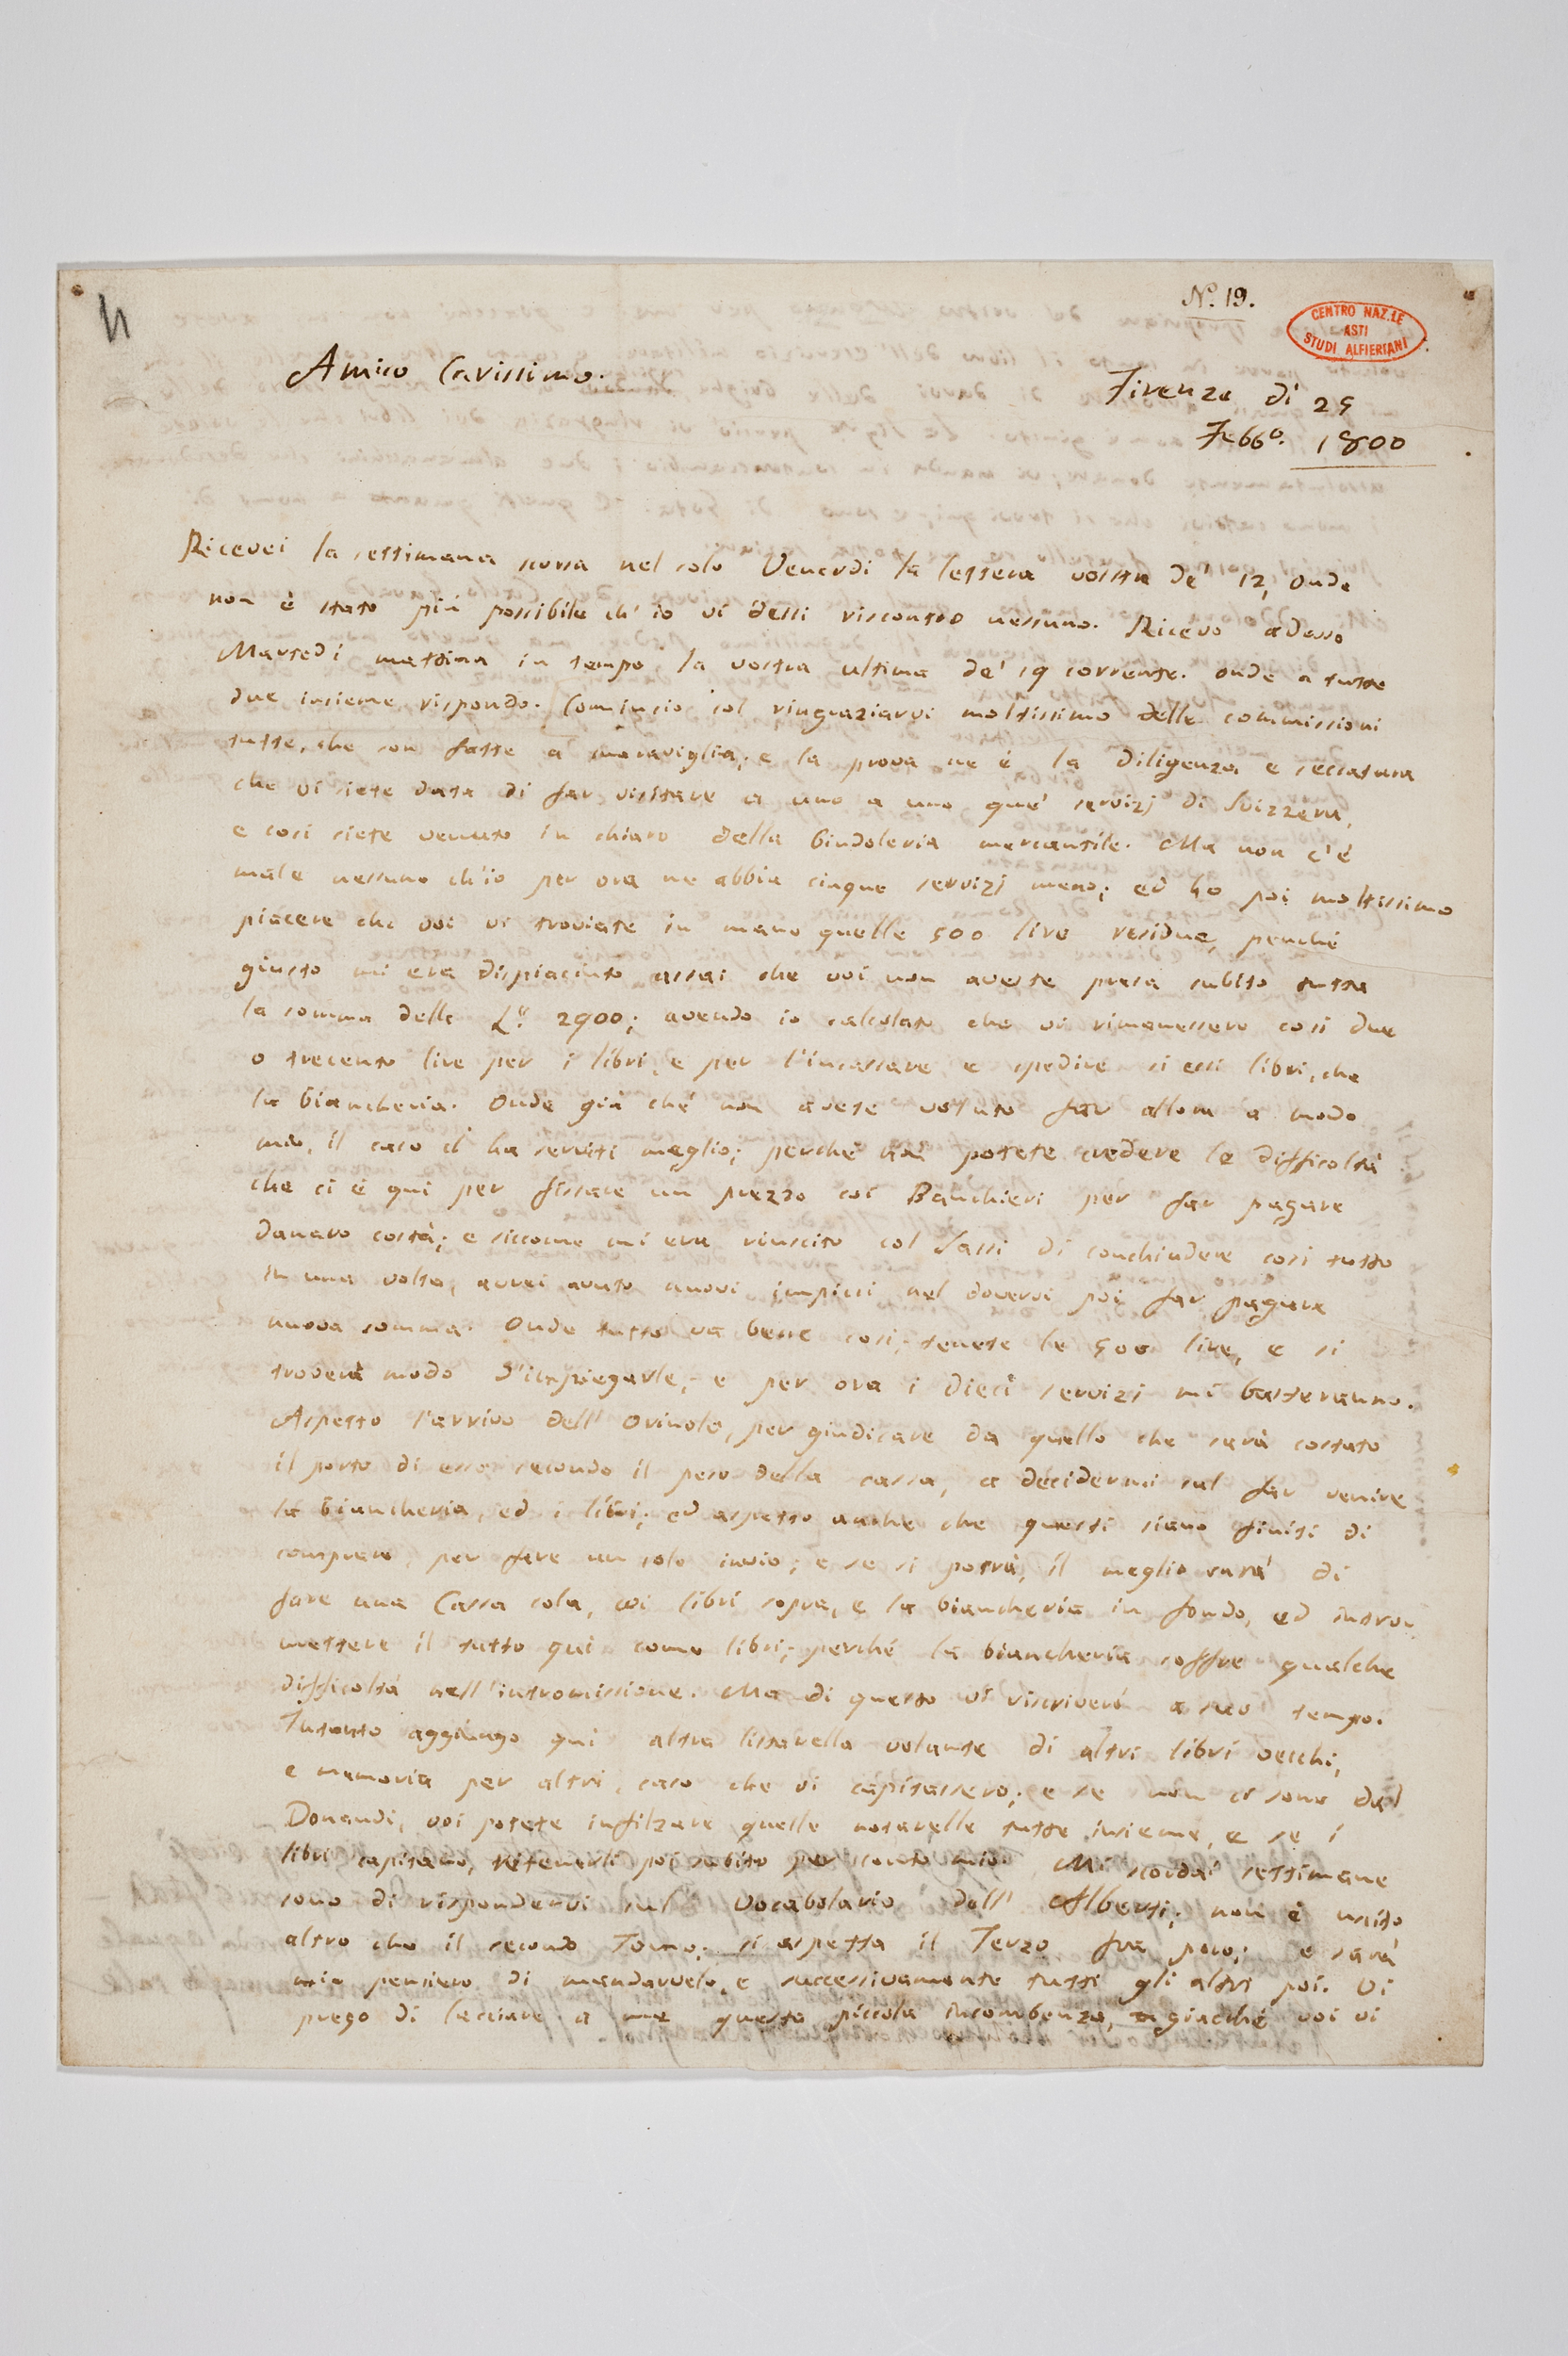 N.º 19.
CENTRO NAZ.LE
ASTI
STUDI ALFIERIANI
Amico Carissimo.
Firenze dì 25
Febb.º 1800
Ricevei la settimana scorsa nel solo Venerdì la lettera vostra de' 12, onde
non è stato più possibile ch'io vi dessi riscontro nessuno. Ricevo adesso
Martedì mattina in tempo la vostra ultima de' 19 corrente. onde a tutte
due insieme rispondo. Comincio col ringraziarvi moltissimo delle commissioni
tutte, che son fatte a maraviglia; e la prova ne è la diligenza e seccatura
che vi siete data di far visitare a uno a uno que' servizj di Svizzera,
e così siete venuto in chiaro della bindoleria mercantile. Ma non c'è
male nessuno ch'io per ora ne abbia cinque servizj meno; ed ho poi moltissimo
piacere che voi vi troviate in mano quelle 500 lire residue, perché
giusto mi era dispiaciuto assai che voi non aveste presa subito tutta
la somma delle L.e 2900; avendo io calcolato che vi rimanessero così due
o trecento lire per i libri, e per l'incassare e spedire sì essi libri, che
la biancheria. Onde già ché non avete voluto far allora a modo
mio, il caso ci ha serviti meglio; perché non potete credere le difficoltà
che ci è qui per fissare un prezzo coi Banchieri per far pagare
danaro costà; e siccome mi era riuscito col Sassi di conchiudere così tutto
in una volta, avrei avuto nuovi impicci nel dovervi poi far pagare
nuova somma. Onde tutto va bene così; tenete le 500 lire, e si
troverà modo d'impiegarle; e per ora i dieci servizi mi basteranno.
Aspetto l'arrivo dell' Oriuolo, per giudicare da quello che sarà costato
il porto di esso secondo il peso della cassa, a decidermi sul far venire
la biancheria, ed i libri; ed aspetto anche che questi siano finiti di
comprare, per fare un solo invio; e se si potrà, il meglio sarà di
fare una Cassa sola, coi libri sopra, e la biancheria in fondo, ed intro-
mettere il tutto qui come libri; perché la biancheria soffre qualche
difficoltà nell'intromissione. Ma di questo vi riscriverò a suo tempo.
Intanto aggiungo qui altra listarella volante di altri libri vecchi,
e memoria per altri, caso che vi capitassero; e se non ci sono dal
Donaudi, voi potete infilzare quelle notarelle tutte insieme, e se i
libri capitano, ritenerli poi subito per conto mio. Mi scordai settimane
sono di rispondervi sul Vocabolario dell' Alberti; non è uscito
altro che il secondo Tomo; si aspetta il Terzo fra poco; e sarà
mio pensiero di mandarvelo, e successivamente tutti gli altri poi. Vi
prego di lasciare a me questa piccola incombenza, giacché voi vi